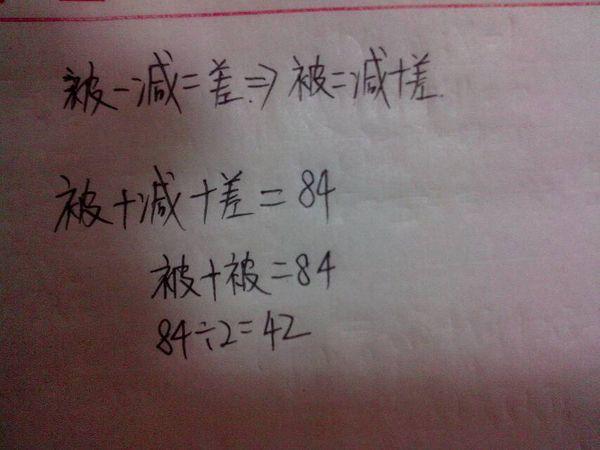 被-减=差⇒被=减+差.
被+减+差=84
被+被=84
84÷2=42